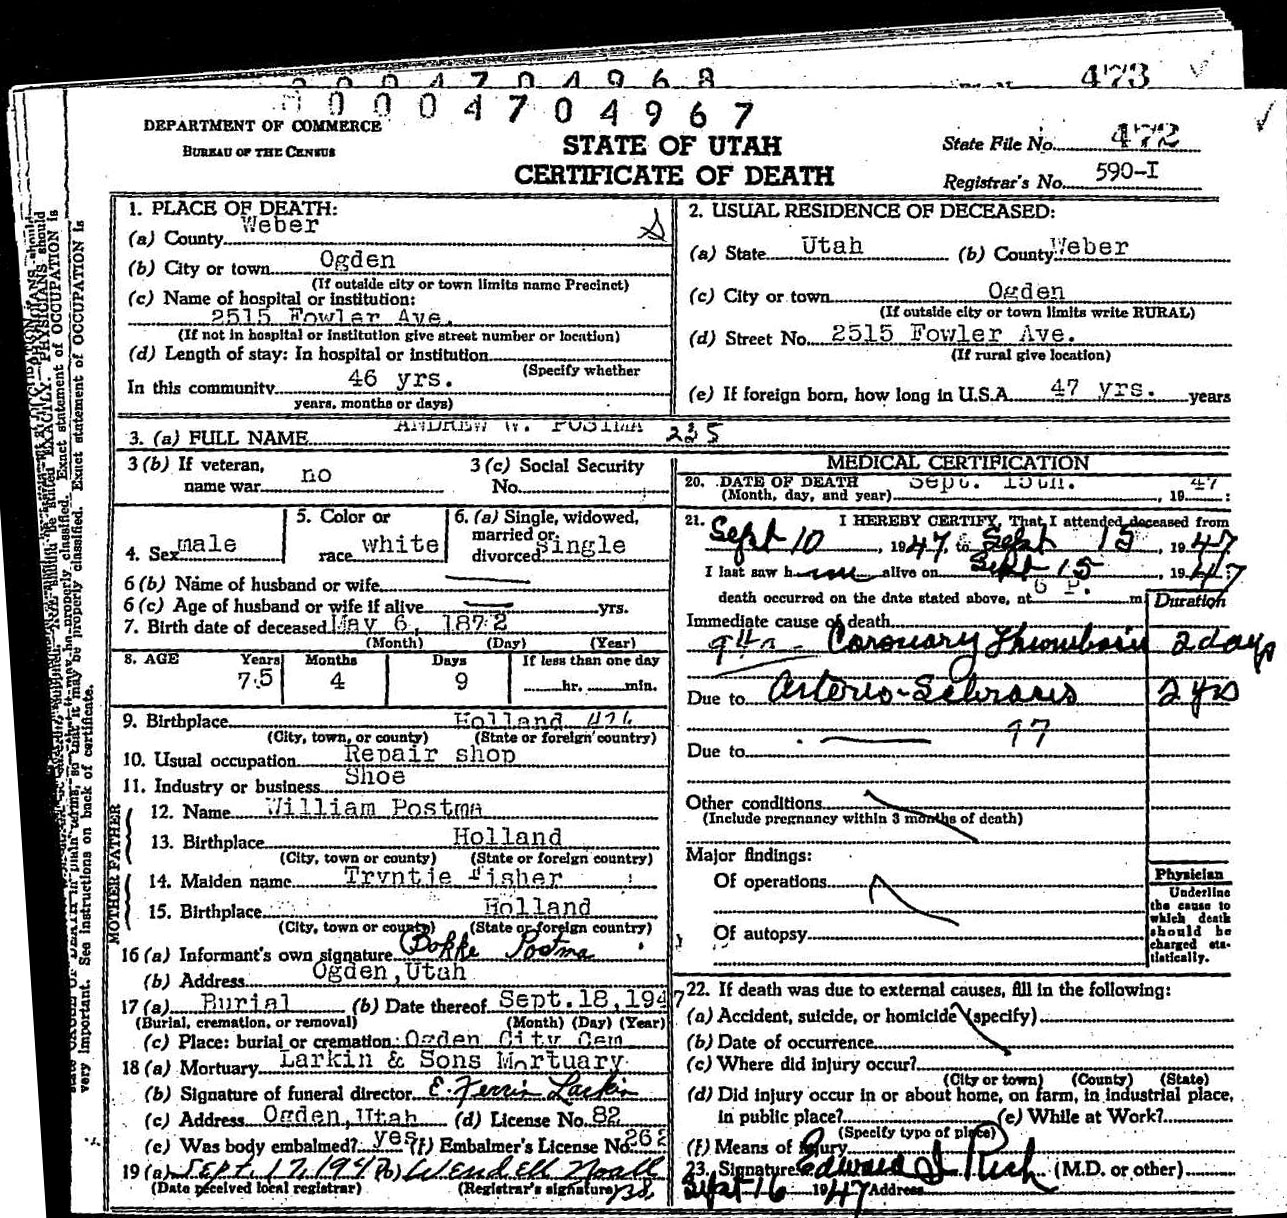 0004704968
473
0004704967
DEPARTMENT OF COMMERCE
BUREAU OF THE CENSUS
STATE OF UTAH
CERTIFICATE OF DEATH
State File No. 472
Registrar's No. 590-I
1. PLACE OF DEATH:
(a) County Weber
(b) City or town Ogden
(If outside city or town limits name Precinct)
(c) Name of hospital or institution:
2515 Fowler Ave.
(If not in hospital or institution give street number or location)
(d) Length of stay: In hospital or institution
(Specify whether
In this community 46 yrs.
years, months or days)
2. USUAL RESIDENCE OF DECEASED:
(a) State Utah (b) County Weber
(c) City or town Ogden
(If outside city or town limits write RURAL)
(d) Street No. 2515 Fowler Ave.
(If rural give location)
(e) If foreign born, how long in U.S.A. 47 yrs. years
3. (a) FULL NAME ANDREW W. POSTMA 235
3 (b) If veteran, name war no
3 (c) Social Security No.
4. Sex male
5. Color or race white
6. (a) Single, widowed, married or divorced single
6 (b) Name of husband or wife
6 (c) Age of husband or wife if alive yrs.
7. Birth date of deceased May 6, 1872
(Month) (Day) (Year)
8. AGE Years Months Days If less than one day
75 4 9 hr. min.
9. Birthplace Holland
(City, town, or county) (State or foreign country)
10. Usual occupation Repair shop
11. Industry or business Shoe
FATHER
12. Name William Postma
13. Birthplace Holland
(City, town or county) (State or foreign country)
MOTHER
14. Maiden name Tryntje Fisher
15. Birthplace Holland
(City, town or county) (State or foreign country)
16 (a) Informant's own signature Bokke Postma
(b) Address Ogden, Utah
17 (a) Burial (b) Date thereof Sept. 18, 1947
(Burial, cremation, or removal) (Month) (Day) (Year)
(c) Place: burial or cremation: Ogden City Cem
18 (a) Mortuary Larkin & Sons Mortuary
(b) Signature of funeral director E. Ferrin Larkin
(c) Address Ogden, Utah (d) License No. 82
(e) Was body embalmed? yes (f) Embalmer's License No. 262
19 (a) Sept. 17, 1947 (b) Wendell Noall
(Date received local registrar) (Registrar's signature)
MEDICAL CERTIFICATION
20. DATE OF DEATH Sept. 15th. 1947
(Month, day, and year)
21. I HEREBY CERTIFY, That I attended deceased from
Sept 10, 1947, to Sept 15, 1947
I last saw him alive on Sept 15, 1947
death occurred on the date stated above, at 6 P. m
Duration
Immediate cause of death
94a - Coronary Thrombosis 2 days
Due to Arterio-Sclerosis 2 yrs
97
Due to
Other conditions
(Include pregnancy within 3 months of death)
Major findings:
Of operations
Of autopsy
Physician
Underline
the cause to
which death
should be
charged sta-
tistically.
22. If death was due to external causes, fill in the following:
(a) Accident, suicide, or homicide (specify)
(b) Date of occurrence
(c) Where did injury occur?
(City or town) (County) (State)
(d) Did injury occur in or about home, on farm, in industrial place,
in public place? (e) While at Work?
(Specify type of place)
(f) Means of injury
23. Signature Edward I Rich (M.D. or other)
Sept 16 1947 Address
very important. See instructions on back of certificate.
Exact statement of OCCUPATION is